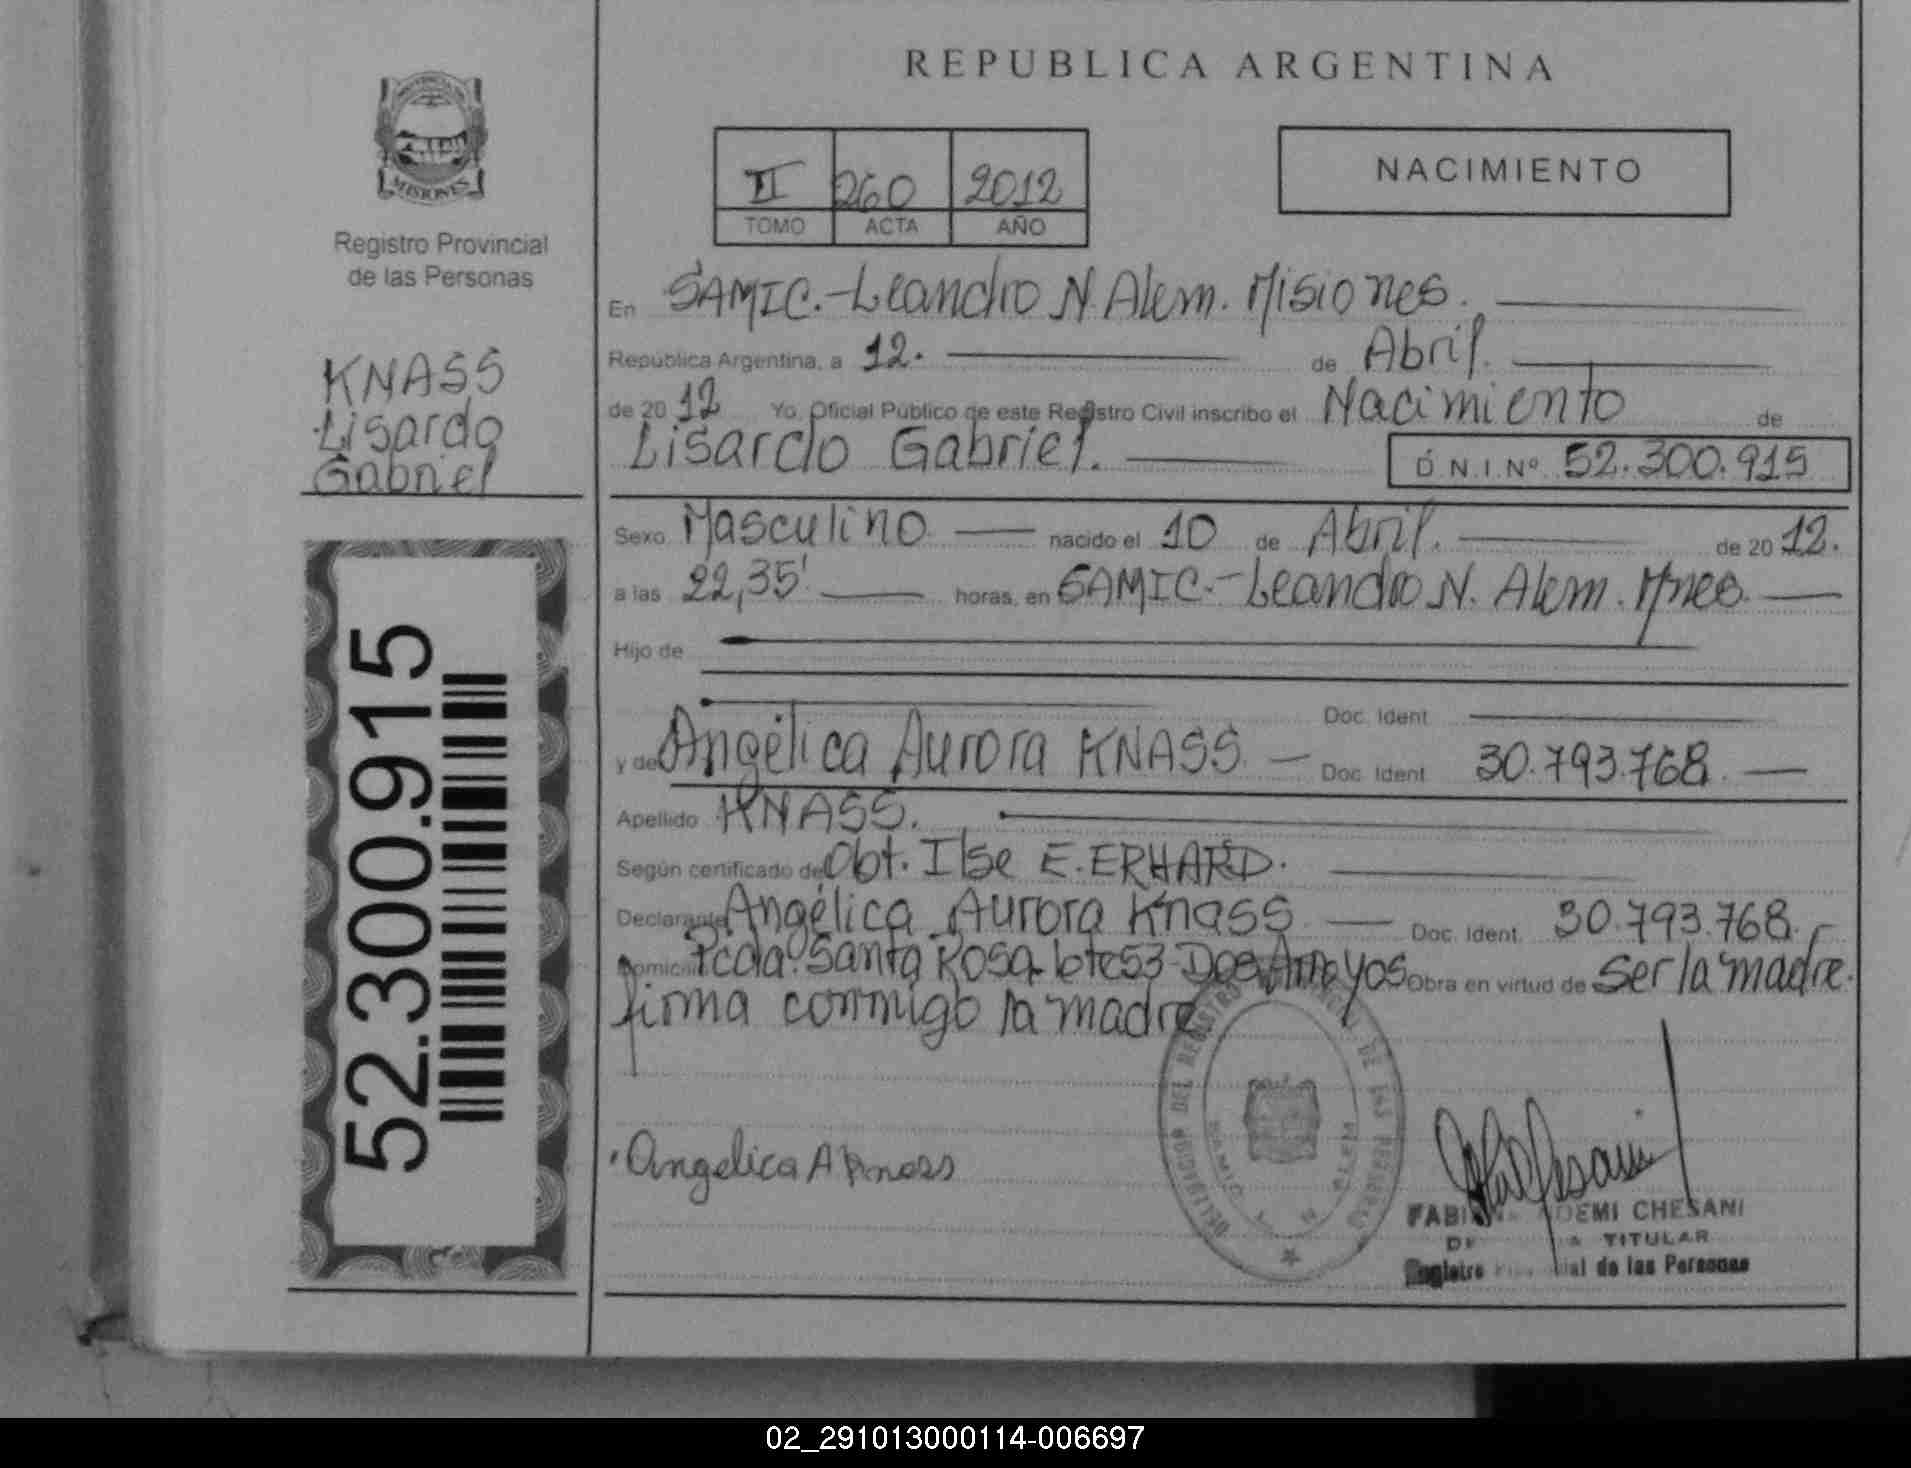 REPUBLICA ARGENTINA
MISIONES
Registro Provincial
de las Personas
II 260 2012
TOMO ACTA AÑO
NACIMIENTO
KNASS
Lisardo
Gabriel
52.300.915
En SAMIC.-Leandro N. Alem. Misiones.
República Argentina, a 12. de Abril.
de 2012 Yo, Oficial Público de este Registro Civil inscribo el Nacimiento de
Lisardo Gabriel. D.N.I. Nº 52.300.915
Sexo Masculino nacido el 10 de Abril. de 2012.
a las 22,35' horas, en SAMIC.-Leandro N. Alem. Mnes.
Hijo de
Doc. Ident.
y de Angélica Aurora KNASS. Doc. Ident. 30.793.768.
Apellido KNASS.
Según certificado de Obt. Ilse E. ERHARD.
Declarante Angélica Aurora Knass Doc. Ident. 30.793.768.
Domicilio Pcda. Santa Rosa-lote 53-Dos Arroyos Obra en virtud de Ser la madre.
firma conmigo la madre
DELEGACION DEL REGISTRO PROVINCIAL DE LAS PERSONAS
SAMIC N ALEM
Angelica A Knass
FABIANA NOEMI CHESANI
TITULAR
Registro Provincial de las Personas
02_291013000114-006697